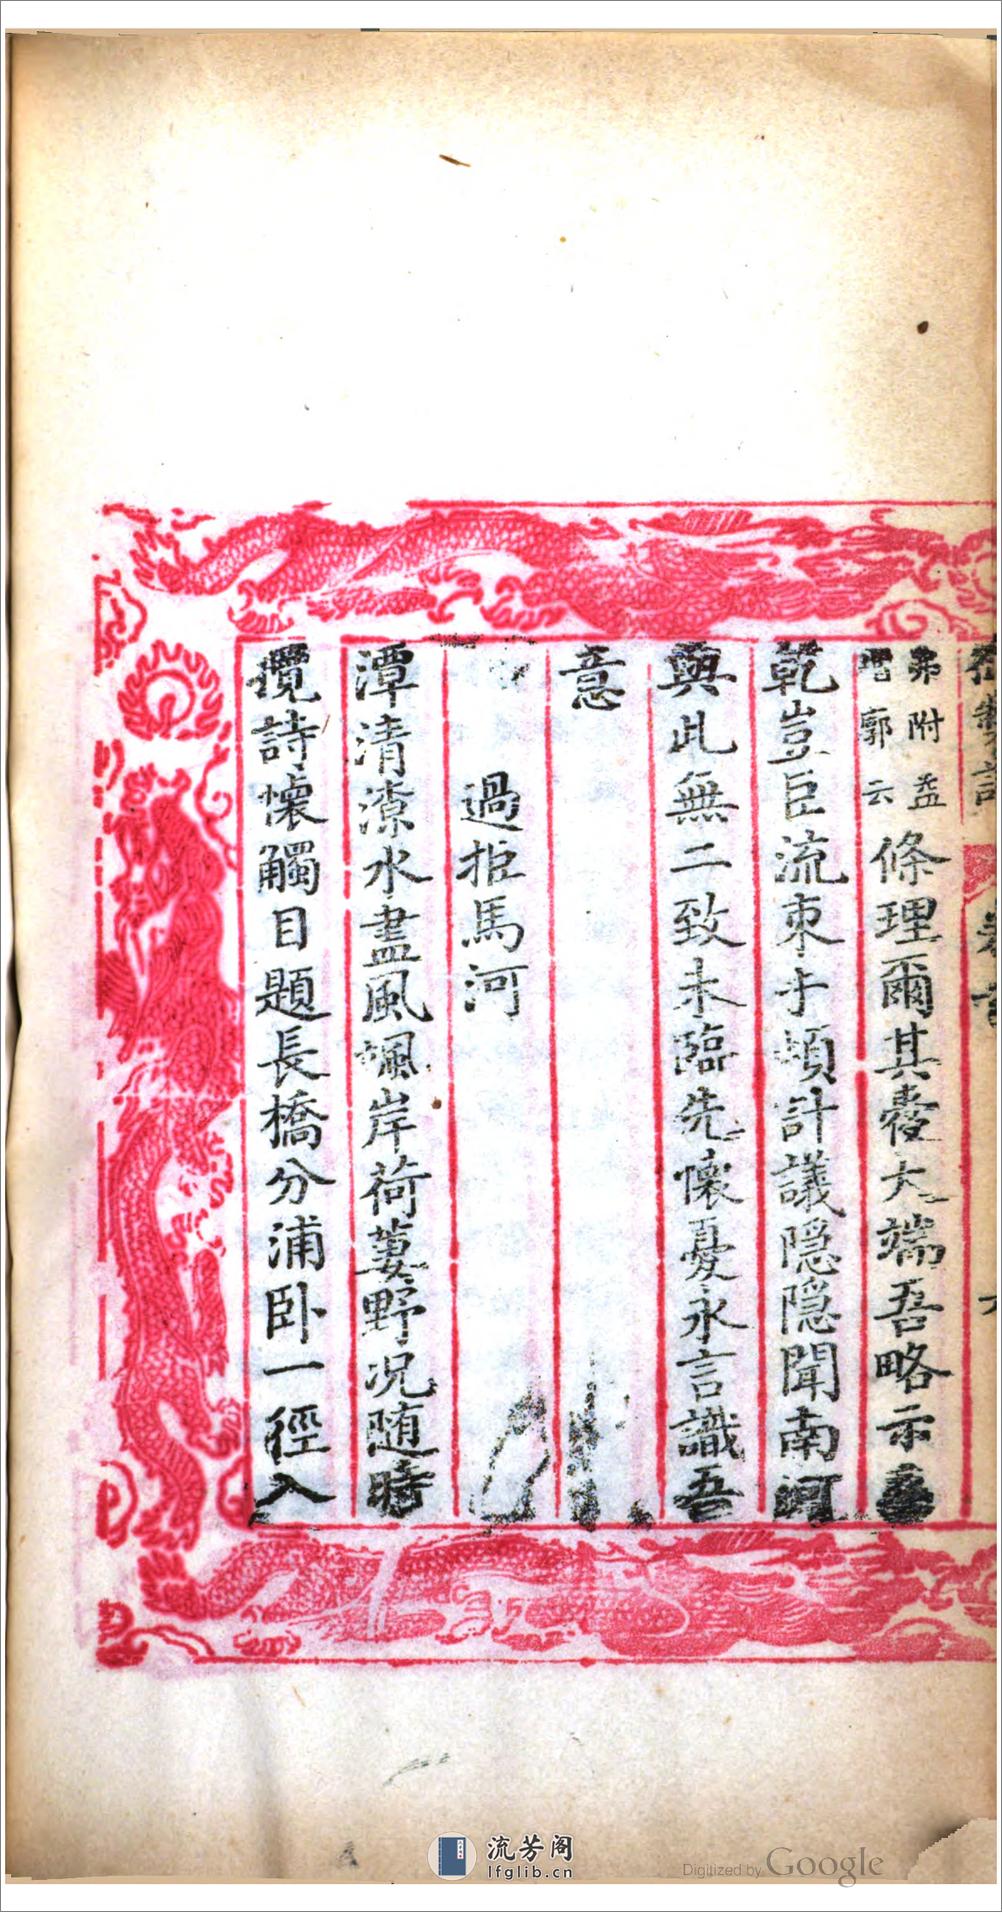 弗附益
增廓云
條理爾其受大端吾略示
乾豈臣流束手頃計議隱隱聞南河
與此無二致未臨先懷憂永言識吾
意
過拒馬河
潭清潦水盡風颯岸荷萋野況随時
攬詩懷觸目題長橋分浦卧一徑入
流芳阁
lfglib.cn
Digitized by Google